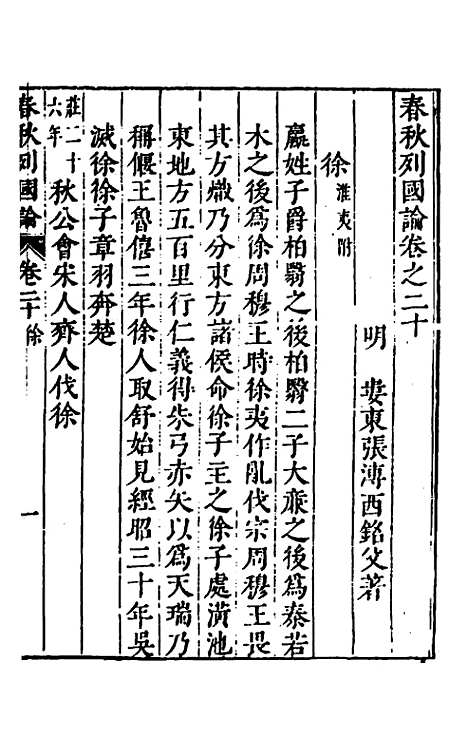 春秋列國論卷之二十
明　婁東張溥西銘父著
徐淮夷附
嬴姓子爵柏翳之後柏翳二子大廉之後爲秦若
木之後爲徐周穆王時徐夷作亂伐宗周穆王畏
其方熾乃分東方諸侯命徐子主之徐子處潢池
東地方五百里行仁義得朱弓赤矢以爲天瑞乃
稱偃王魯僖三年徐人取舒始見經昭三十年吳
滅徐徐子章羽奔楚
莊二十六年秋公會宋人齊人伐徐
春秋列國論　卷二十　徐　一